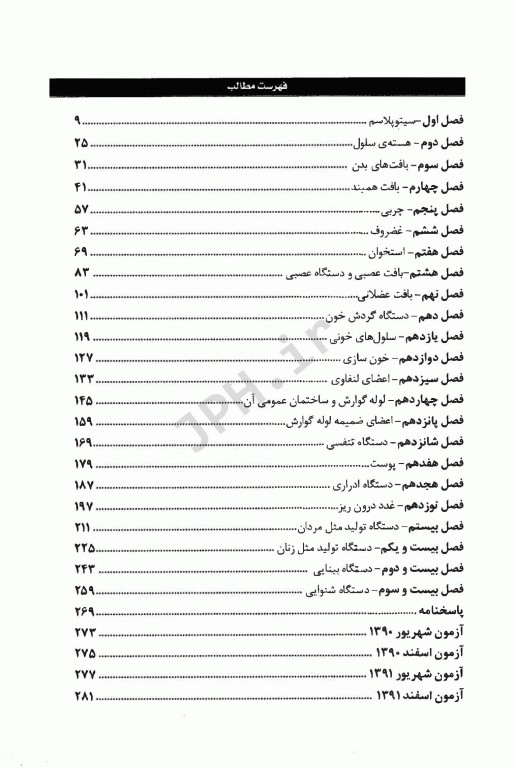 فهرست مطالب
فصل اول-سیتوپلاسم ........ ۹
فصل دوم - هسته‌ی سلول ........ ۲۵
فصل سوم - بافت‌های بدن ........ ۳۱
فصل چهارم - بافت همبند ........ ۴۱
فصل پنجم - چربی ........ ۵۷
فصل ششم - غضروف ........ ۶۳
فصل هفتم - استخوان ........ ۶۹
فصل هشتم -بافت عصبی و دستگاه عصبی ........ ۸۳
فصل نهم - بافت عضلانی ........ ۱۰۱
فصل دهم - دستگاه گردش خون ........ ۱۱۱
فصل یازدهم - سلول‌های خونی ........ ۱۱۹
فصل دوازدهم - خون سازی ........ ۱۲۷
فصل سیزدهم - اعضای لنفاوی ........ ۱۳۳
فصل چهاردهم - لوله گوارش و ساختمان عمومی آن ........ ۱۴۵
فصل پانزدهم - اعضای ضمیمه لوله گوارش ........ ۱۵۹
فصل شانزدهم - دستگاه تنفسی ........ ۱۶۹
فصل هفدهم - پوست ........ ۱۷۹
فصل هجدهم - دستگاه ادراری ........ ۱۸۷
فصل نوزدهم - غدد درون ریز ........ ۱۹۷
فصل بیستم - دستگاه تولید مثل مردان ........ ۲۱۱
فصل بیست و یکم - دستگاه تولید مثل زنان ........ ۲۲۵
فصل بیست و دوم - دستگاه بینایی ........ ۲۴۳
فصل بیست و سوم - دستگاه شنوایی ........ ۲۵۹
پاسخنامه ........ ۲۶۹
آزمون شهریور ۱۳۹۰ ........ ۲۷۳
آزمون اسفند ۱۳۹۰ ........ ۲۷۵
آزمون شهریور ۱۳۹۱ ........ ۲۷۷
آزمون اسفند ۱۳۹۱ ........ ۲۸۱
JPH.ir